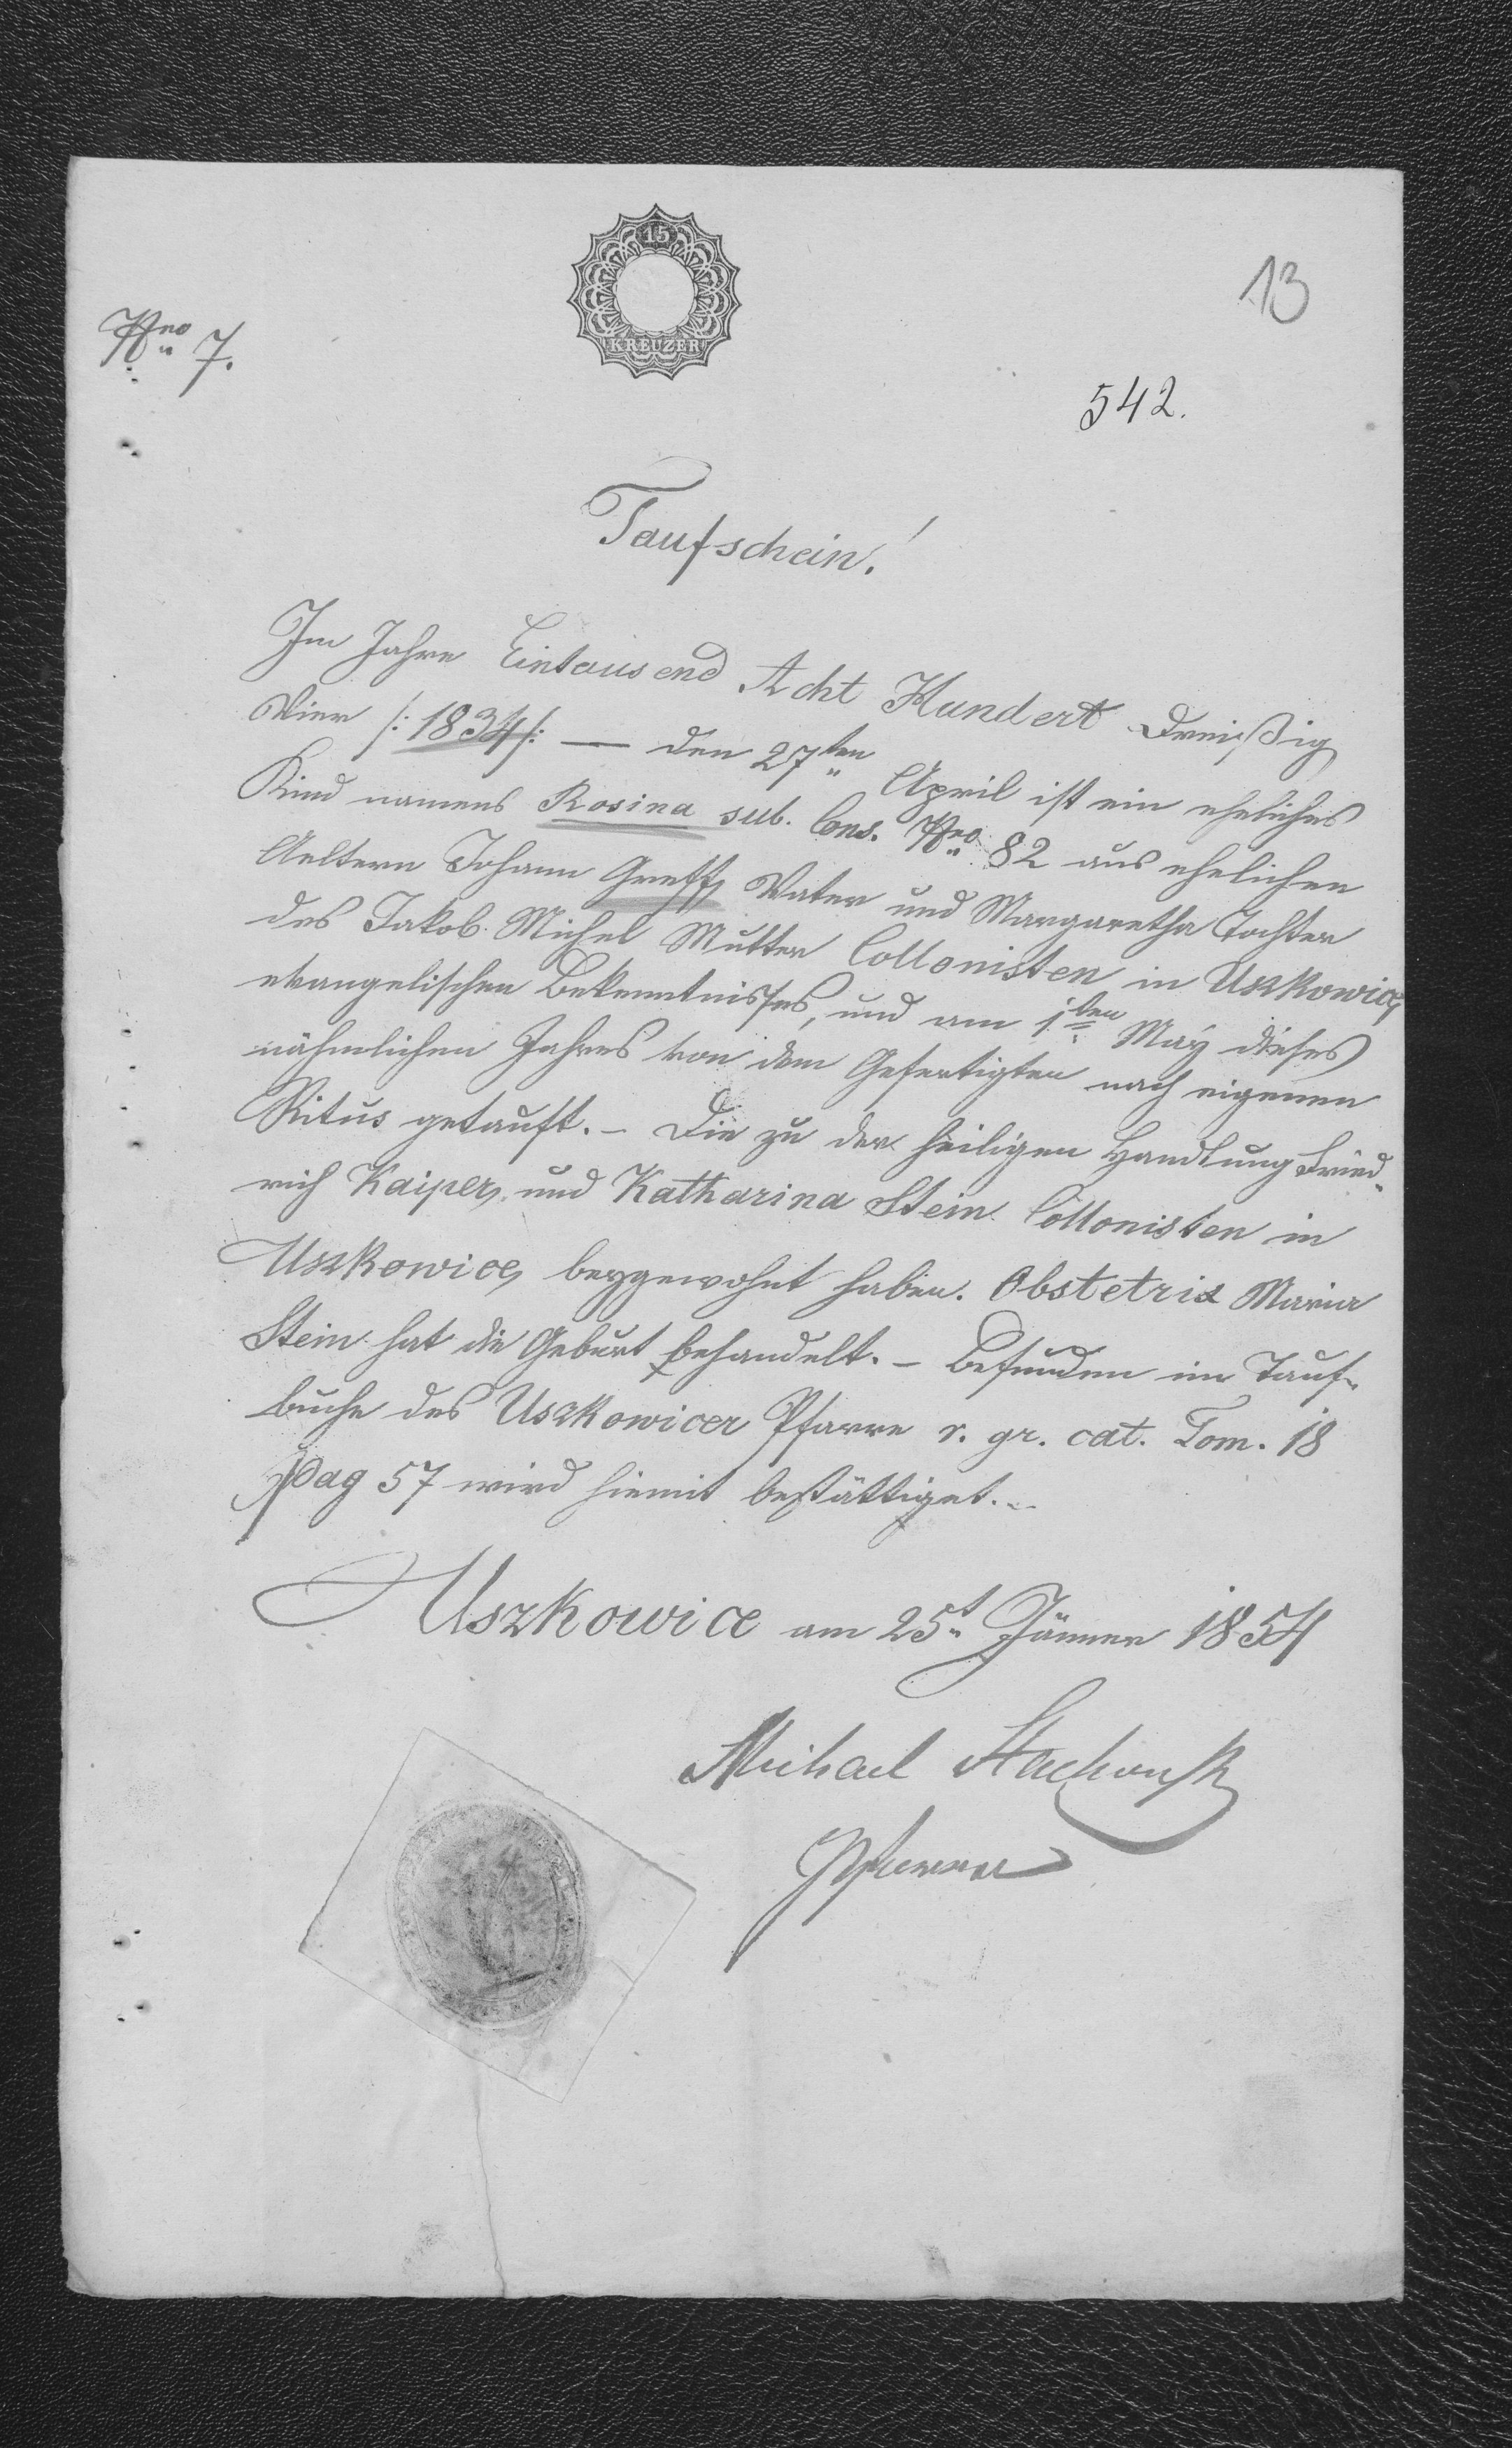 15
KREUZER
13
Nro 7.
542.
Taufschein!
Im Jahre Eintausend Acht Hundert Dreißig
Vier /: 1834 /: — den 27ten April ist ein eheliches
Kind namens Rosina sub. Cons. Nro 82 aus ehelichen
Aeltern Johann Greff, Vater und Margaretha Tochter
des Jakob Michel Mutter Collonisten in Uszkowice,
evangelischen Bekenntnisses, und am 1ten May dieses
nähmlichen Jahres von dem Gefertigten nach eigenen
Ritus getauft. – Die zu der heiligen Handlung Fried-
rich Kaiper, und Katharina Stein Collonisten in
Uszkowice, beygewohnt haben. Obstetrix Maria
Stein hat die Geburt behandelt. – Befunden im Tauf-
buche des Uszkowicer Pfarre r. gr. cat. Tom. 18
Pag 57 wird hiemit bestättiget. –
Uszkowice am 25t Jänner 1854
Michael
Pfarrer